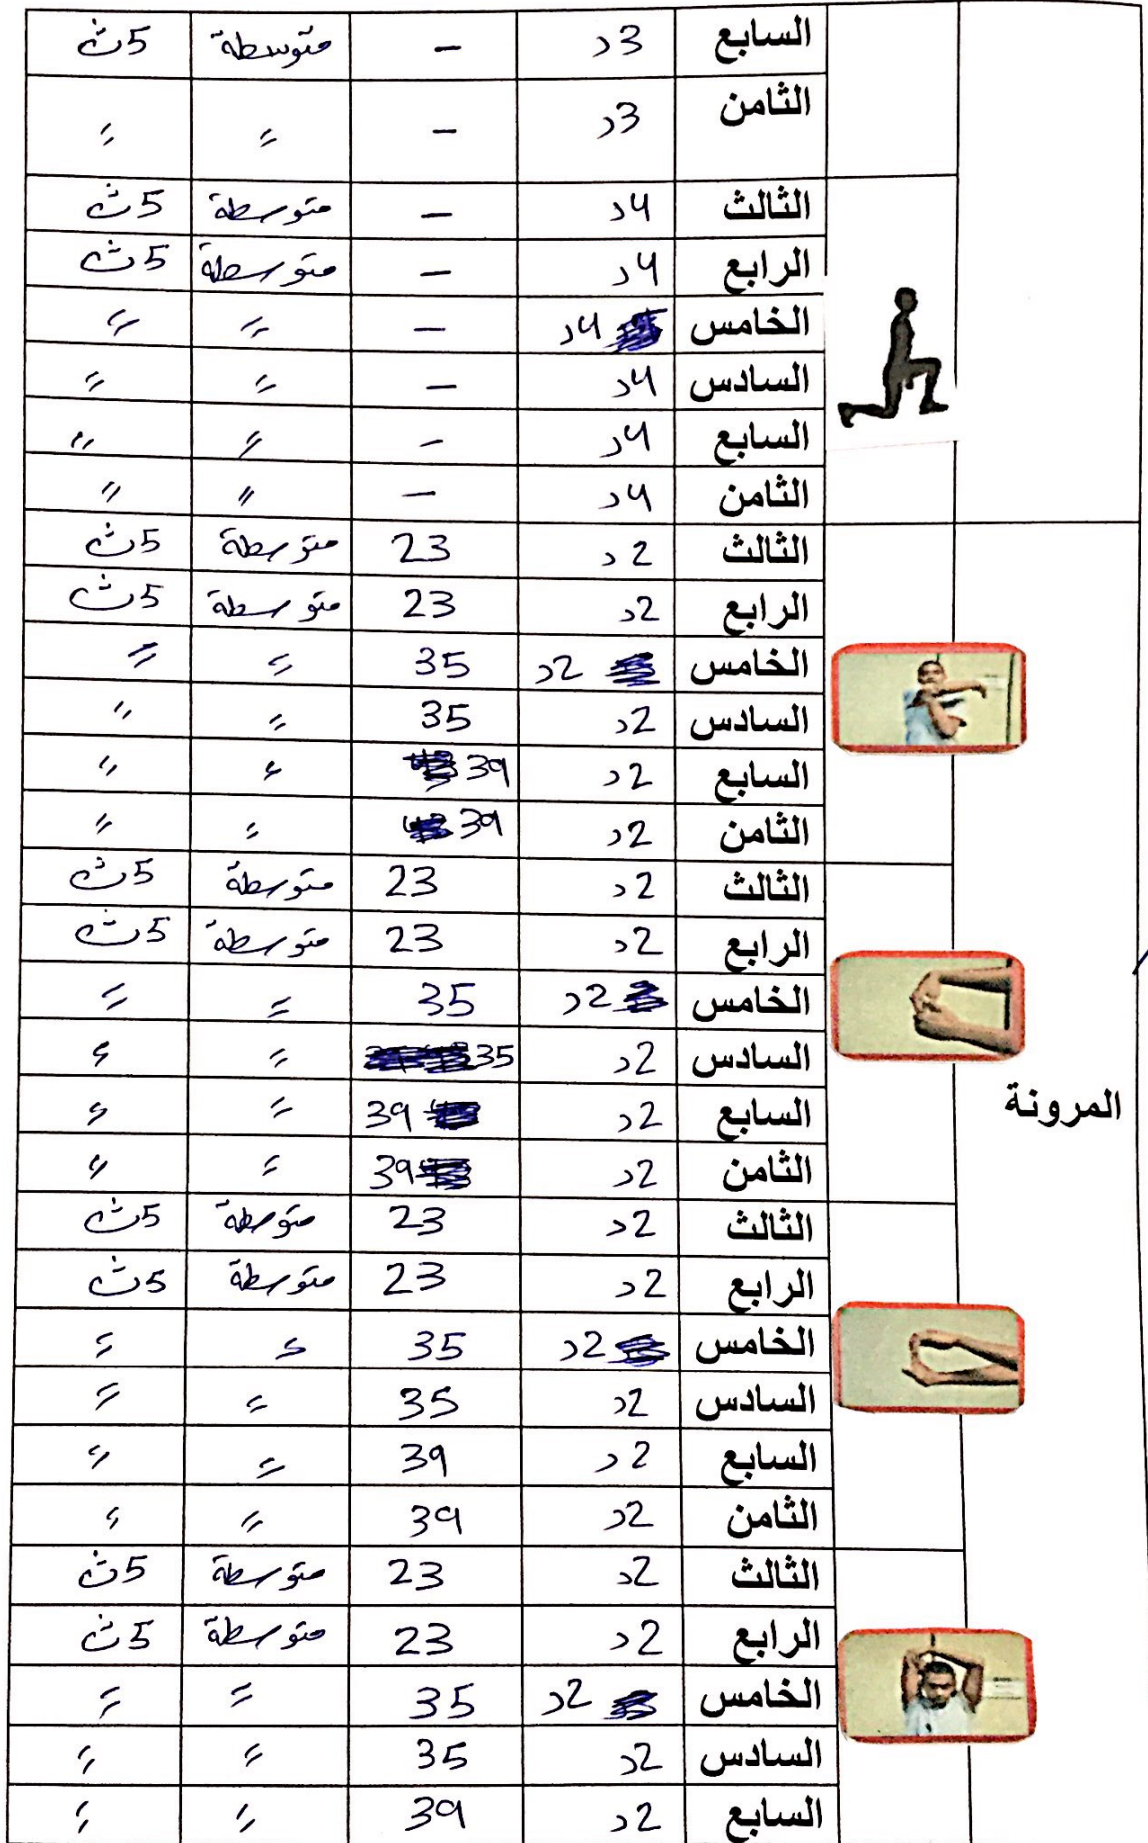 السابع 3د - متوسطة 5ث
الثامن 3د - 〃 〃
الثالث 4د - متوسطة 5ث
الرابع 4د - متوسطة 5ث
الخامس 4د - 〃 〃
السادس 4د - 〃 〃
السابع 4د - 〃 〃
الثامن 4د - 〃 〃
الثالث 2د 23 متوسطة 5ث
الرابع 2د 23 متوسطة 5ث
الخامس 2د 35 〃 〃
السادس 2د 35 〃 〃
السابع 2د 39 〃 〃
الثامن 2د 39 〃 〃
الثالث 2د 23 متوسطة 5ث
الرابع 2د 23 متوسطة 5ث
الخامس 2د 35 〃 〃
السادس 2د 35 〃 〃
المرونة
السابع 2د 39 〃 〃
الثامن 2د 39 〃 〃
الثالث 2د 23 متوسطة 5ث
الرابع 2د 23 متوسطة 5ث
الخامس 2د 35 〃 〃
السادس 2د 35 〃 〃
السابع 2د 39 〃 〃
الثامن 2د 39 〃 〃
الثالث 2د 23 متوسطة 5ث
الرابع 2د 23 متوسطة 5ث
الخامس 2د 35 〃 〃
السادس 2د 35 〃 〃
السابع 2د 39 〃 〃